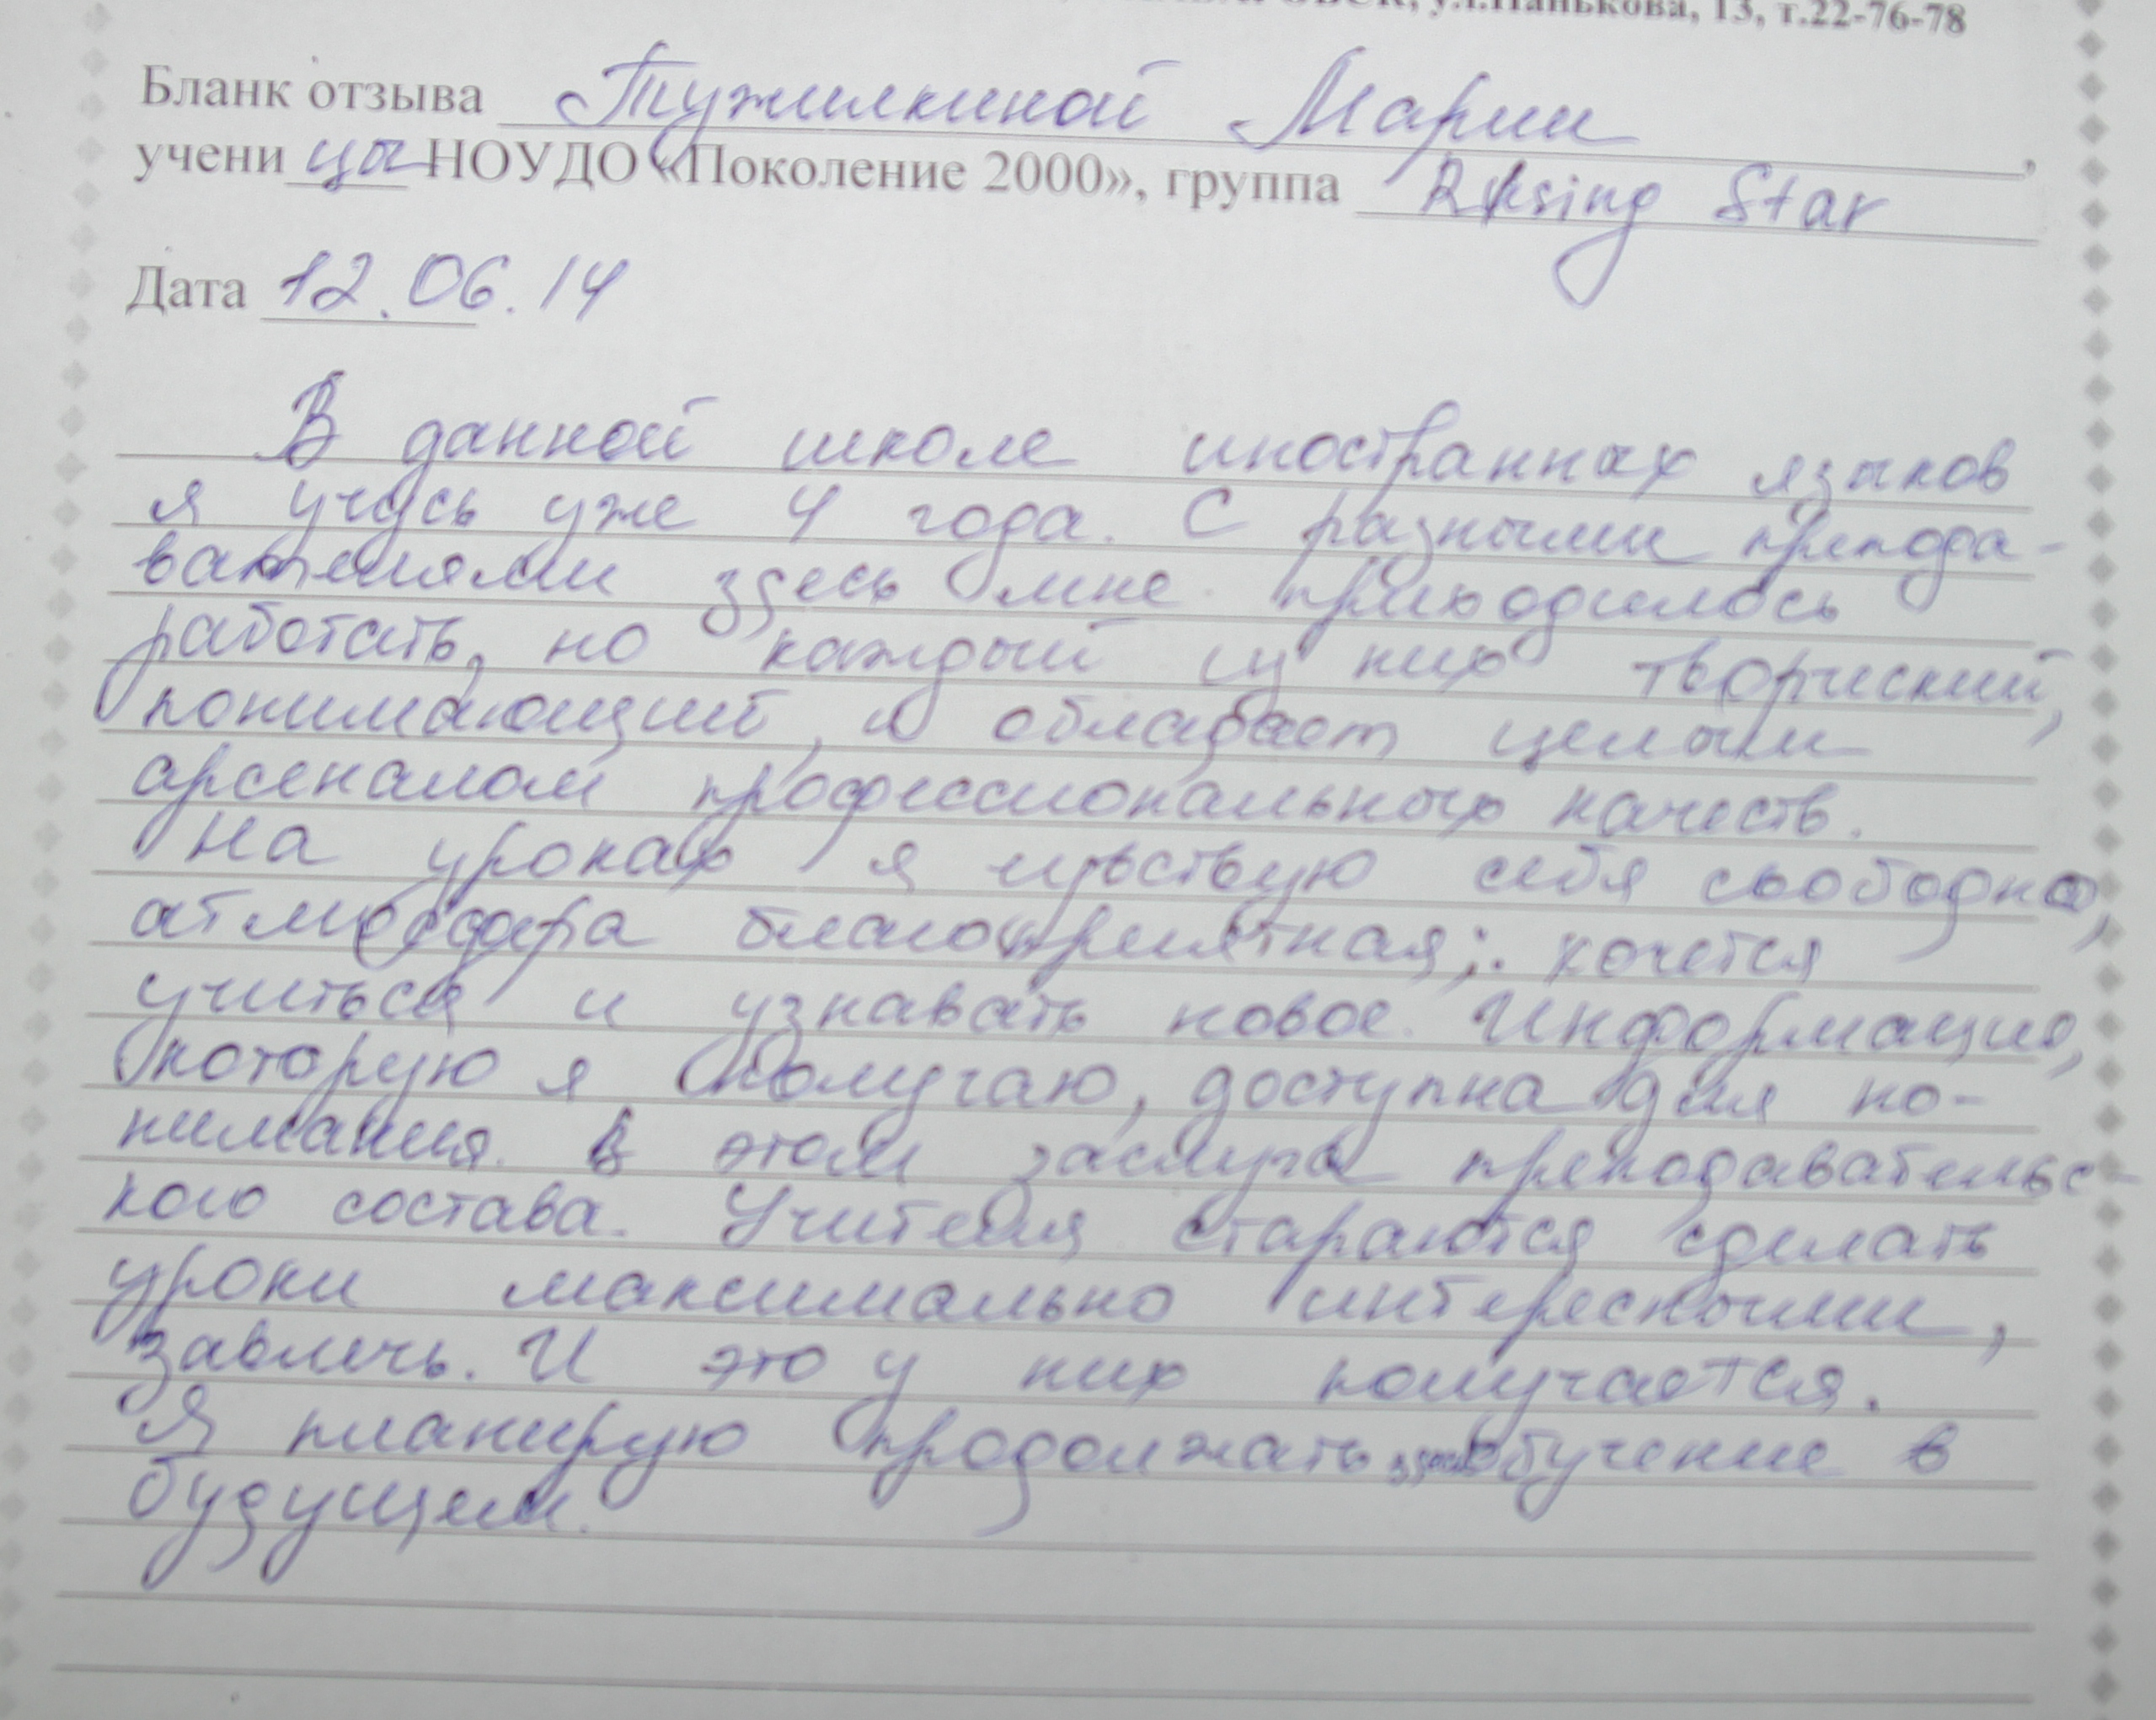 ул.Панькова, 13, т.22-76-78
Бланк отзыва Тужилкиной Марии,
учени цы НОУДО «Поколение 2000», группа Rising Star
Дата 12.06.14
В данной школе иностранных языков
я учусь уже 4 года. С разными препода-
вателями здесь мне приходилось
работать, но каждый из них творческий,
понимающий, и обладает целым
арсеналом профессиональных качеств.
На уроках я чувствую себя свободно,
атмосфера благоприятная; хочется
учиться и узнавать новое. Информация,
которую я получаю, доступна для по-
нимания. В этом заслуга преподавательс-
кого состава. Учителя стараются сделать
уроки максимально интересными,
завлечь. И это у них получается.
Я планирую продолжать здесь обучение в
будущем.